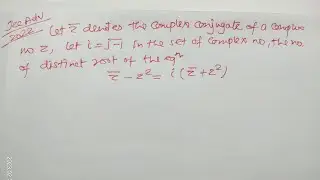 JEE Adv
2022
Let z̄ denotes the complex conjugate of a complex
no z, Let i=√-1 in the set of complex no, the no
of distinct root of the eqⁿ
z̄ - z² = i(z̄ + z²)